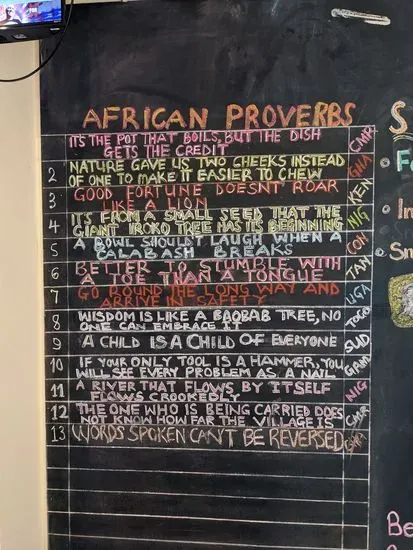 AFRICAN PROVERBS
IT'S THE POT THAT BOILS, BUT THE DISH
GETS THE CREDIT CMR
2 NATURE GAVE US TWO CHEEKS INSTEAD
OF ONE TO MAKE IT EASIER TO CHEW GHA
3 GOOD FORTUNE DOESNT' ROAR
LIKE A LION KEN
4 IT'S FROM A SMALL SEED THAT THE
GIANT IROKO TREE HAS IT'S BEGINNING NIG
5 A BOWL SHOULDT LAUGH WHEN A
CALABASH BREAKS
6 BETTER TO STUMBLE WITH
A TOE THAN A TONGUE TAN
7 GO ROUND THE LONG WAY AND
ARRIVE IN SAFETY UGA
8 WISDOM IS LIKE A BAOBAB TREE, NO
ONE CAN EMBRACE IT TOGO
9 A CHILD IS A CHILD OF EVERYONE SUD
10 IF YOUR ONLY TOOL IS A HAMMER, YOU
WILL SEE EVERY PROBLEM AS A NAIL GAM
11 A RIVER THAT FLOWS BY ITSELF
FLOWS CROOKEDLY NIG
12 THE ONE WHO IS BEING CARRIED DOES
NOT KNOW HOW FAR THE VILLAGE IS CMR
13 WORDS SPOKEN CAN'T BE REVERSED GHA
S
Sm
Be